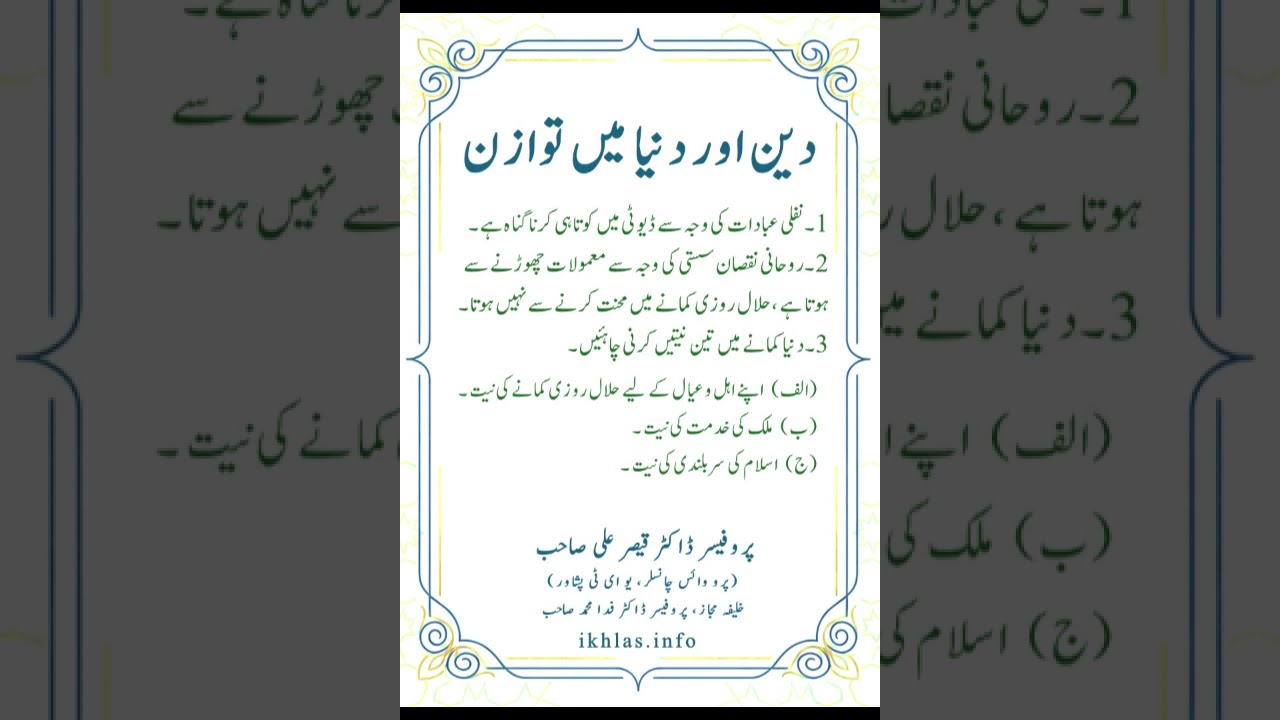 دین اور دنیا میں توازن
1۔ نفلی عبادات کی وجہ سے ڈیوٹی میں کوتاہی کرنا گناہ ہے۔
2۔ روحانی نقصان سستی کی وجہ سے معمولات چھوڑنے سے
ہوتا ہے، حلال روزی کمانے میں محنت کرنے سے نہیں ہوتا۔
3۔ دنیا کمانے میں تین نیتیں کرنی چاہئیں۔
(الف) اپنے اہل و عیال کے لیے حلال روزی کمانے کی نیت۔
(ب) ملک کی خدمت کی نیت۔
(ج) اسلام کی سربلندی کی نیت۔
پروفیسر ڈاکٹر قیصر علی صاحب
(پرو وائس چانسلر، یو ای ٹی پشاور)
خلیفہ مجاز، پروفیسر ڈاکٹر فدا محمد صاحب
ikhlas.info